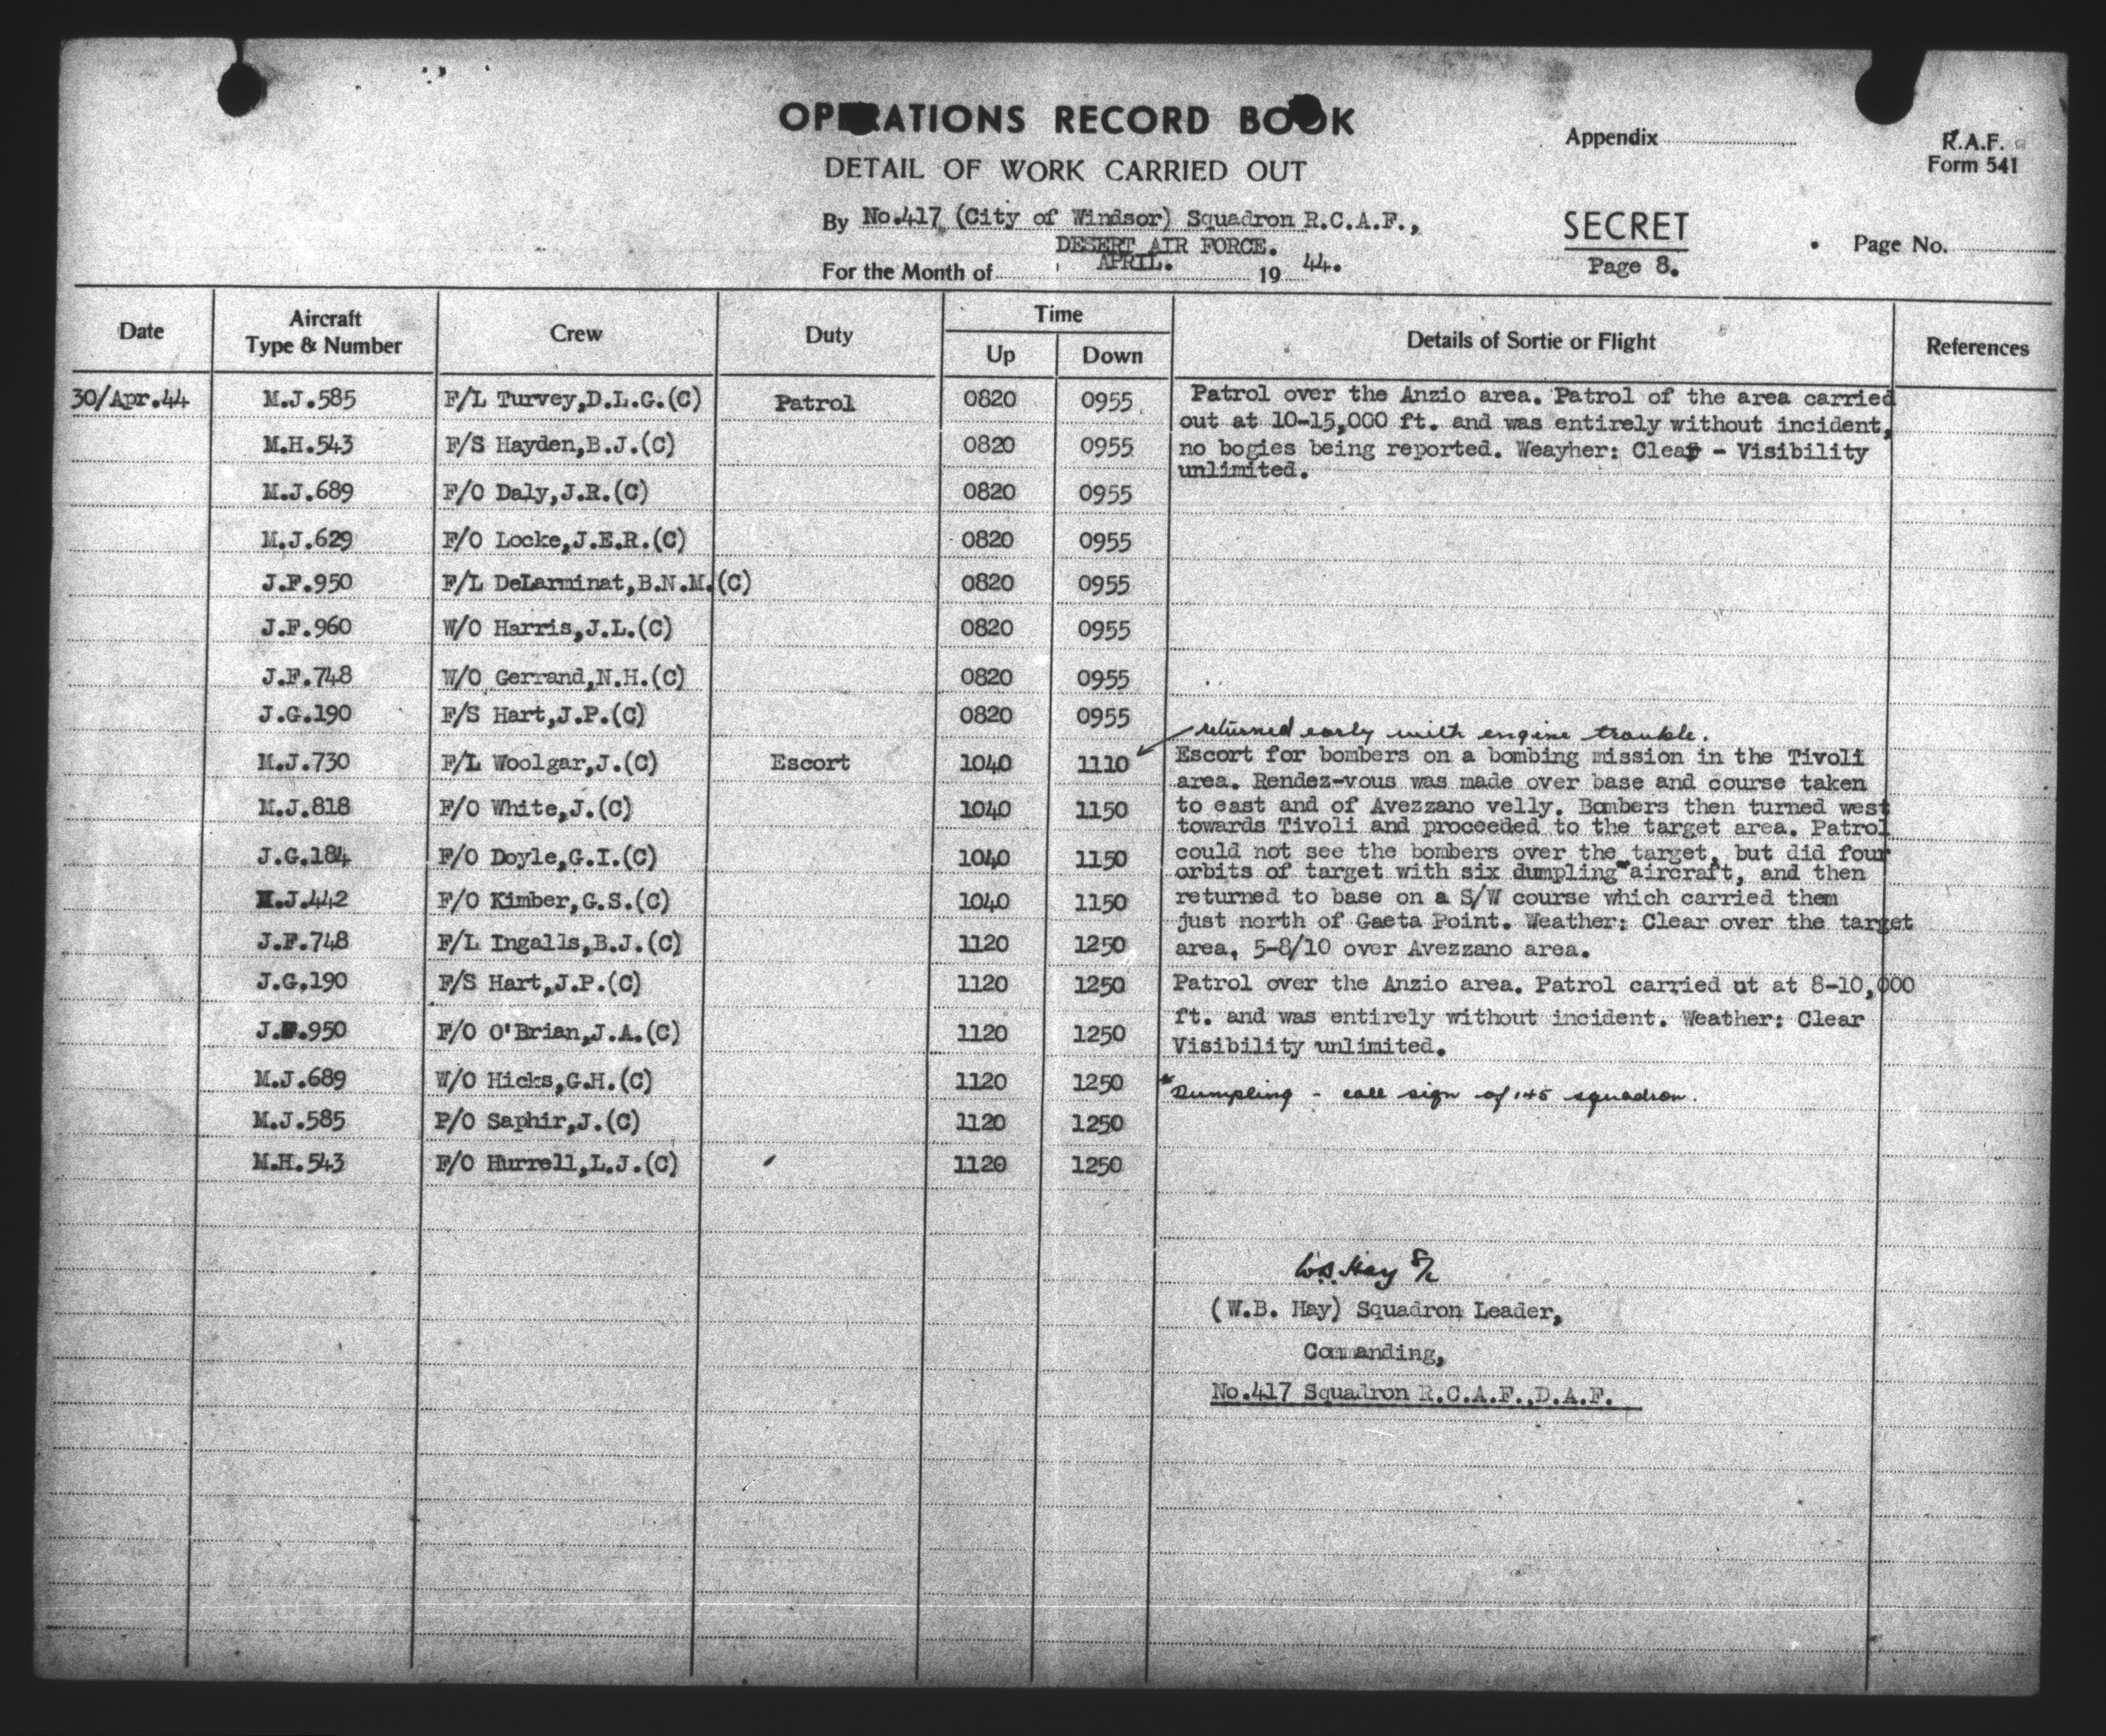 OPERATIONS RECORD BOOK
Appendix
R.A.F.
Form 541
DETAIL OF WORK CARRIED OUT
By No.417 (City of Windsor) Squadron R.C.A.F.,
DESERT AIR FORCE.
SECRET
Page No.
For the Month of APRIL. 19 44.
Page 8.
Date Aircraft Type & Number Crew Duty Time Up Down Details of Sortie or Flight References
30/Apr.44 M.J.585 F/L Turvey,D.L.G.(C) Patrol 0820 0955 Patrol over the Anzio area. Patrol of the area carried
out at 10-15,000 ft. and was entirely without incident,
M.H.543 F/S Hayden,B.J.(C) 0820 0955 no bogies being reported. Weayher: Clear - Visibility
unlimited.
M.J.689 F/O Daly,J.R.(C) 0820 0955
M.J.629 F/O Locke,J.E.R.(C) 0820 0955
J.F.950 F/L DeLarminat,B.N.M.(C) 0820 0955
J.F.960 W/O Harris,J.L.(C) 0820 0955
J.F.748 W/O Gerrand,N.H.(C) 0820 0955
J.G.190 F/S Hart,J.P.(C) 0820 0955
returned early with engine trouble.
M.J.730 F/L Woolgar,J.(C) Escort 1040 1110 Escort for bombers on a bombing mission in the Tivoli
area. Rendez-vous was made over base and course taken
M.J.818 F/O White,J.(C) 1040 1150 to east and of Avezzano velly. Bombers then turned west
towards Tivoli and proceeded to the target area. Patrol
J.G.184 F/O Doyle,G.I.(C) 1040 1150 could not see the bombers over the target, but did four
orbits of target with six dumpling* aircraft, and then
M.J.442 F/O Kimber,G.S.(C) 1040 1150 returned to base on a S/W course which carried them
just north of Gaeta Point. Weather: Clear over the target
J.F.748 F/L Ingalls,B.J.(C) 1120 1250 area, 5-8/10 over Avezzano area.
J.G,190 F/S Hart,J.P.(C) 1120 1250 Patrol over the Anzio area. Patrol carried ut at 8-10,000
ft. and was entirely without incident. Weather: Clear
J.F.950 F/O O'Brian,J.A.(C) 1120 1250 Visibility unlimited.
M.J.689 W/O Hicks,G.H.(C) 1120 1250
* Dumpling - call sign of 145 squadron.
M.J.585 P/O Saphir,J.(C) 1120 1250
M.H.543 F/O Hurrell,L.J.(C) 1120 1250
W.B. Hay S/L
(W.B. Hay) Squadron Leader,
Commanding,
No.417 Squadron R.C.A.F.,D.A.F.